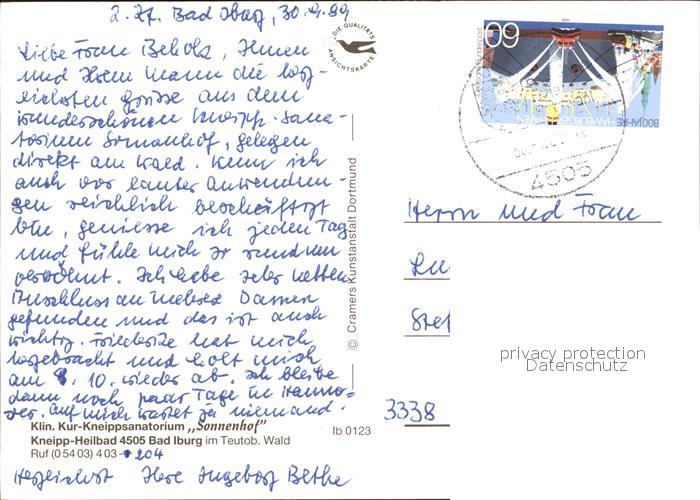 z. Zt. Bad Iburg, 30.9.89
Liebe Frau Beholz, Ihnen
und Ihrem Mann die herz-
lichsten Grüße aus dem
wunderschönen Kneipp-Sana-
torium Sonnenhof, gelegen
direkt am Wald. Wenn ich
auch vor lauter Anwendun-
gen reichlich beschäftigt
bin, genieße ich jeden Tag
und fühle mich so rundum
verwöhnt. Ich habe sehr netten
Anschluss an mehrere Damen
gefunden und das ist auch
wichtig. Friederike hat mich
hergebracht und holt mich
am 8. 10. wieder ab. Ich bleibe
dann noch paar Tage in Hanno-
ver. Auf mich wartet ja niemand.
Klin. Kur-Kneippsanatorium „Sonnenhof"
Kneipp-Heilbad 4505 Bad Iburg im Teutob. Wald
Ruf (0 54 03) 4 03-1 204
Herzlichst Ihre Ingeborg Bethe
Ib 0123
© Cramers Kunstanstalt Dortmund
DIE QUALITÄTS
ANSICHTSKARTE
60
800 JAHRE HAMBURGER HAFEN
4505
Herrn und Frau
3338
privacy protection
Datenschutz